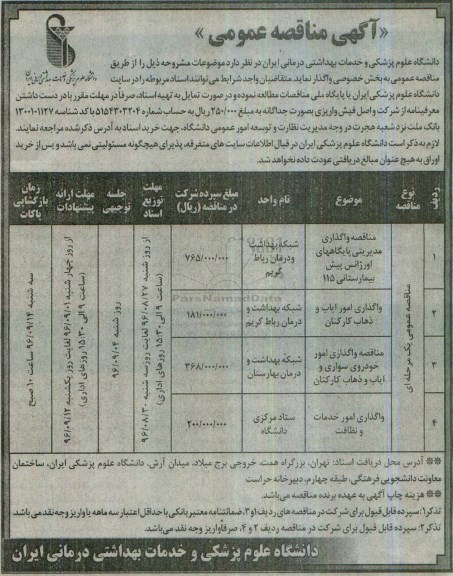 «آگهی مناقصه عمومی»
دانشگاه علوم پزشکی و خدمات بهداشتی درمانی ایران
دانشگاه علوم پزشکی و خدمات بهداشتی درمانی ایران در نظر دارد موضوعات مشروحه ذیل را از طریق
مناقصه عمومی به بخش خصوصی واگذار نماید. متقاضیان واجد شرایط می توانند اسناد مربوطه را در سایت
دانشگاه علوم پزشکی ایران یا پایگاه ملی مناقصات مطالعه نموده و در صورت تمایل به تهیه اسناد، صرفاً در مهلت مقرر با در دست داشتن
معرفینامه از شرکت و اصل فیش واریزی بصورت جداگانه به مبلغ ۲۵۰/۰۰۰ ریال به حساب شماره ۵۱۵۴۳۰۳۲۰۴ با کد شناسه ۱۳۰۰۱۰۱۱۲۷
بانک ملت نزد شعبه هجرت در وجه مدیریت نظارت و توسعه امور عمومی دانشگاه، جهت خرید اسناد به آدرس ذکر شده مراجعه نمایند.
لازم به ذکر است دانشگاه علوم پزشکی ایران در قبال اطلاعات سایت های متفرقه، پذیرای هیچگونه مسئولیتی نمی باشد و پس از خرید
اوراق به هیچ عنوان مبالغ دریافتی عودت داده نخواهد شد.
ردیف
نوع مناقصه
موضوع
نام واحد
مبلغ سپرده شرکت در مناقصه (ریال)
مهلت توزیع اسناد
جلسه توجیهی
مهلت ارائه پیشنهادات
زمان بازگشایی پاکات
مناقصه عمومی یک مرحله ای
۱
مناقصه واگذاری
مدیریتی پایگاههای
اورژانس پیش
بیمارستانی ۱۱۵
شبکه بهداشت
و درمان رباط
کریم
۷۶۵/۰۰۰/۰۰۰
۲
واگذاری امور ایاب و
ذهاب کارکنان
شبکه بهداشت و
درمان رباط کریم
۱۸۱/۰۰۰/۰۰۰
۳
مناقصه واگذاری امور
خودروی سواری و
ایاب و ذهاب کارکنان
شبکه بهداشت و
درمان بهارستان
۳۶۸/۰۰۰/۰۰۰
۴
واگذاری امور خدمات
و نظافت
ستاد مرکزی
دانشگاه
۲۰۰/۰۰۰/۰۰۰
از روز شنبه ۹۶/۰۸/۲۷ لغایت روز سه شنبه ۹۶/۰۸/۳۰
(ساعت ۹ الی ۱۵:۳۰ روزهای اداری)
روز شنبه ۹۶/۰۹/۰۴
از روز چهارشنبه ۹۶/۰۹/۰۱ لغایت روز یکشنبه ۹۶/۰۹/۱۲
(ساعت ۹ الی ۱۵:۳۰ روزهای اداری)
سه شنبه ۹۶/۰۹/۱۴ ساعت ۱۰ صبح
ParsNamadData
** آدرس محل دریافت اسناد: تهران، بزرگراه همت، خروجی برج میلاد، میدان آرش، دانشگاه علوم پزشکی ایران، ساختمان
معاونت دانشجویی فرهنگی، طبقه چهارم، دبیرخانه حراست
** هزینه چاپ آگهی به عهده برنده مناقصه می باشد.
تذکر۱: سپرده قابل قبول برای شرکت در مناقصه های ردیف ۱ و ۳، ضمانتنامه معتبر بانکی با حداقل اعتبار سه ماهه یا واریز وجه نقد می باشد.
تذکر۲: سپرده قابل قبول برای شرکت در مناقصه ردیف ۲ و ۴، صرفاً واریز وجه نقد می باشد.
دانشگاه علوم پزشکی و خدمات بهداشتی درمانی ایران